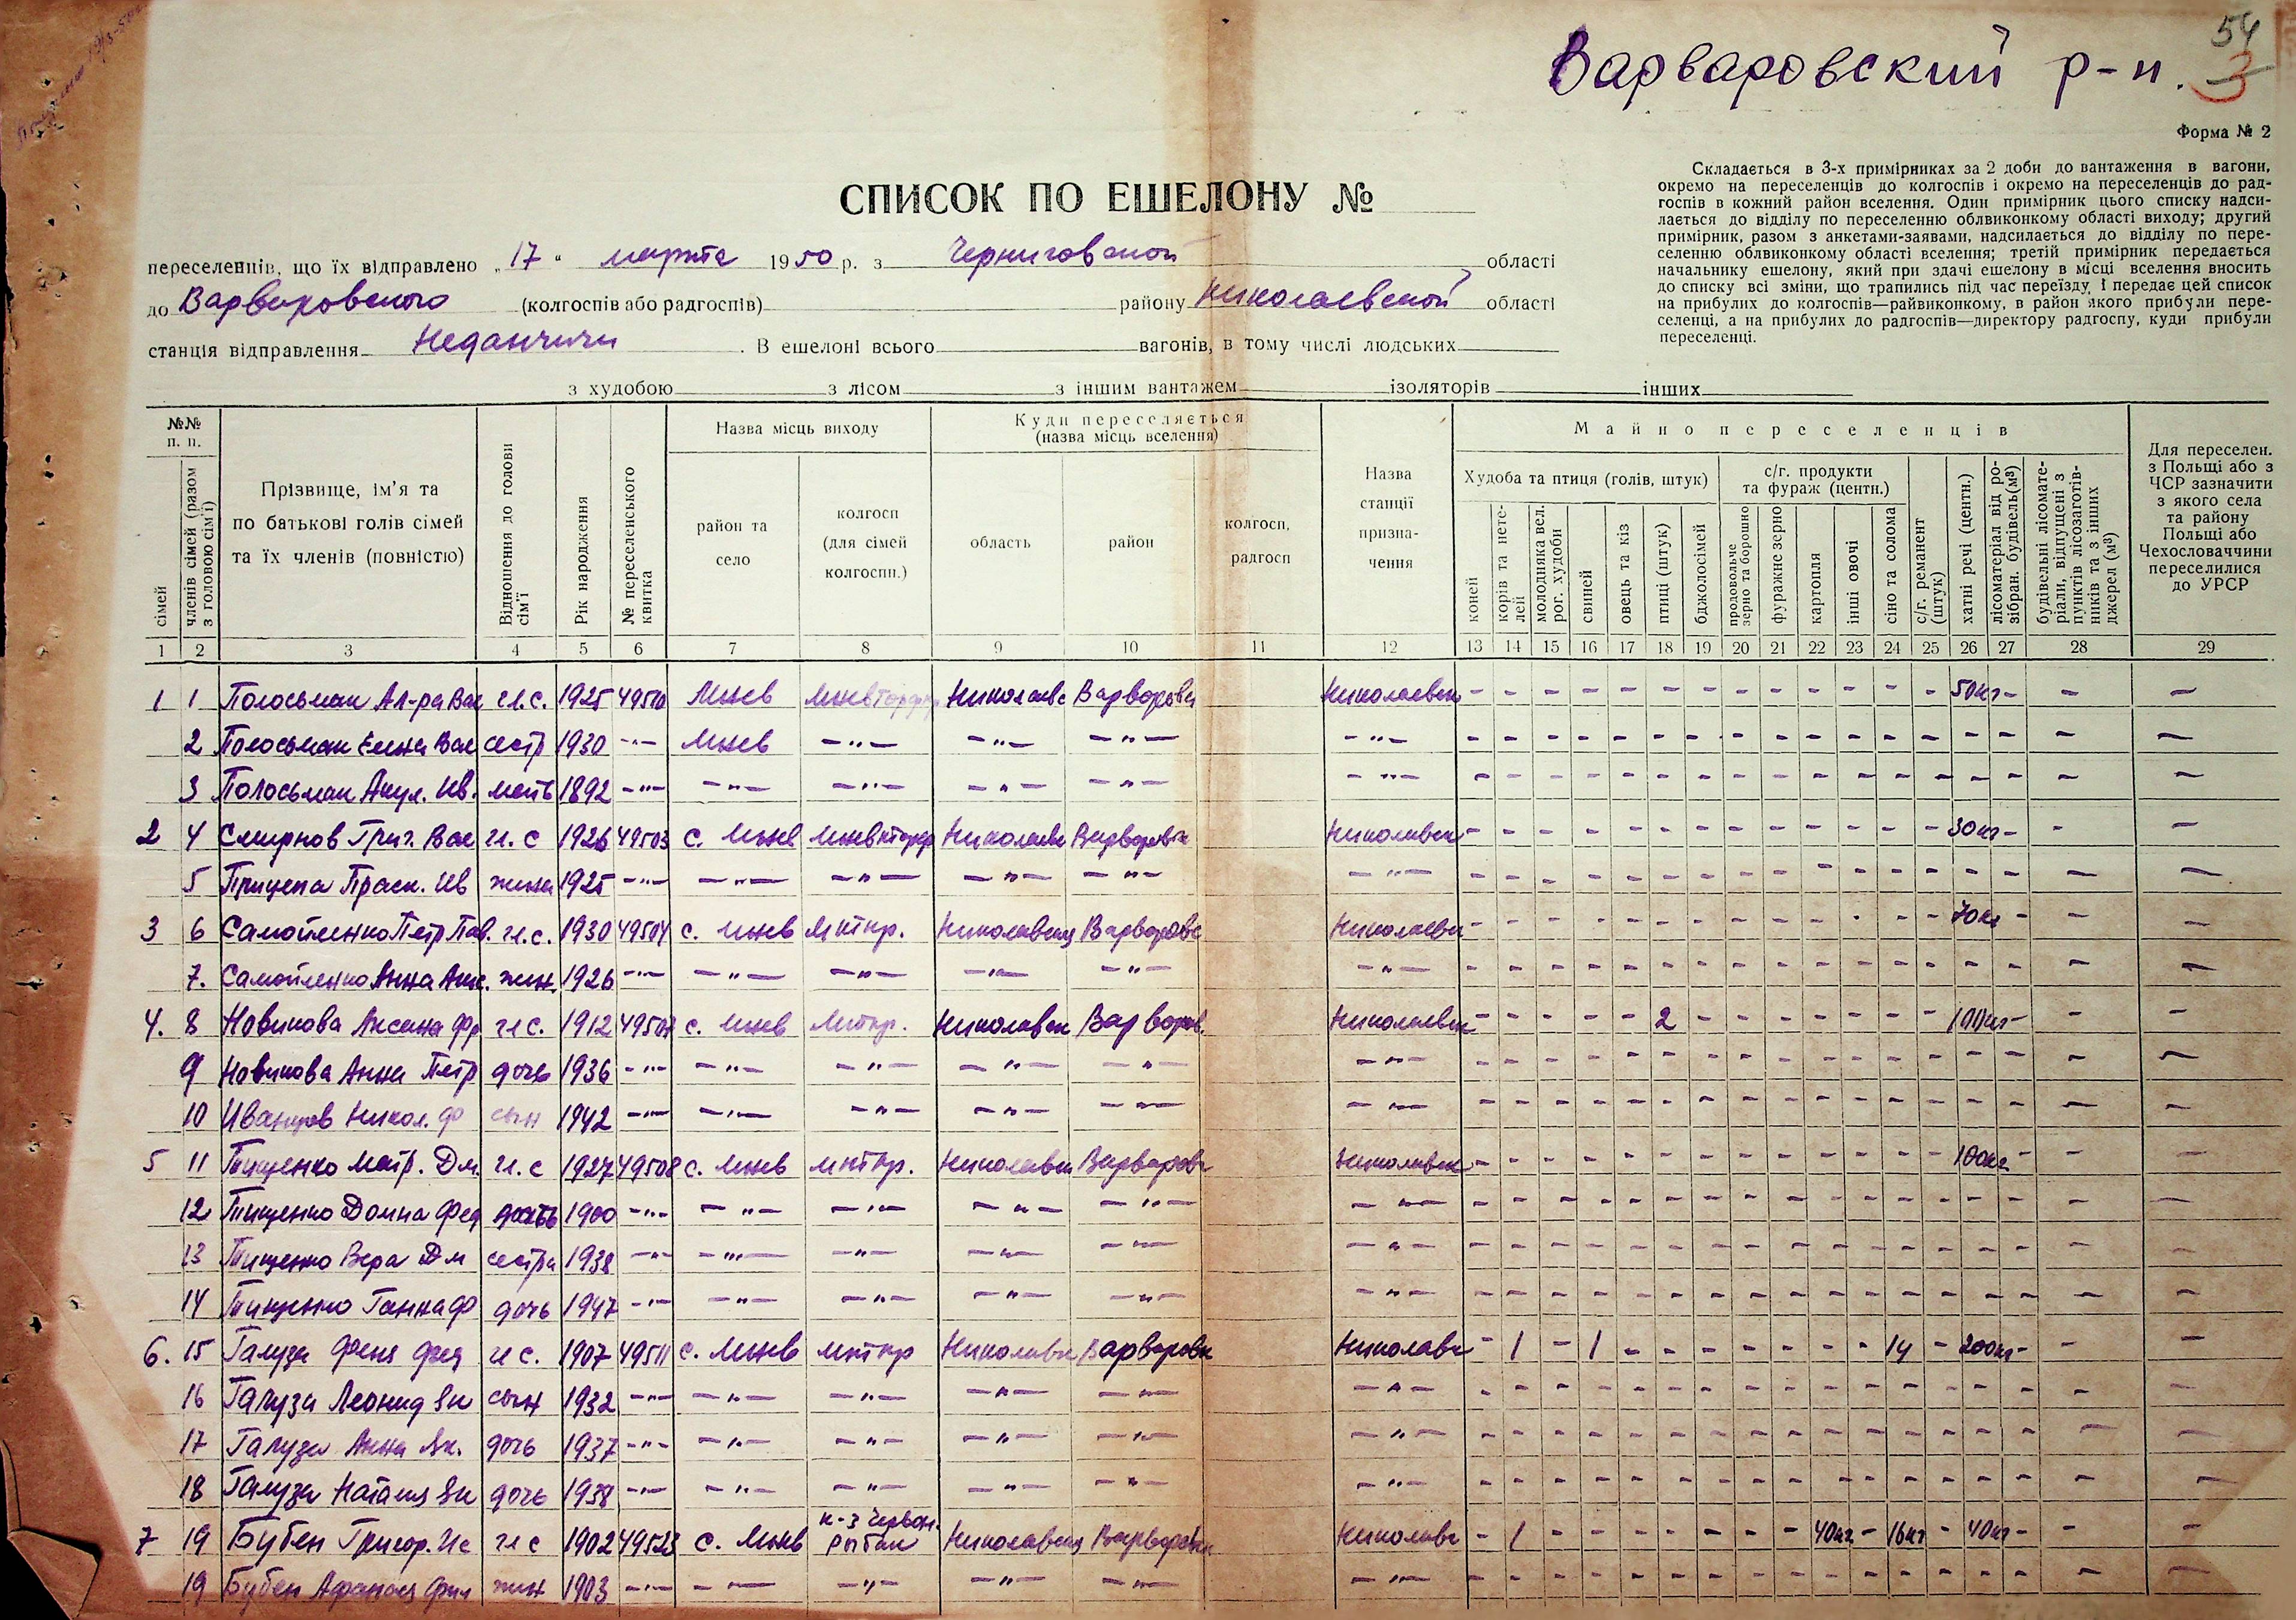 54
Варваровский р-н.
3
Форма № 2
Складається в 3-х примірниках за 2 доби до вантаження в вагони,
окремо на переселенців до колгоспів і окремо на переселенців до рад-
госпів в кожний район вселення. Один примірник цього списку надси-
лається до відділу по переселенню облвиконкому області виходу; другий
примірник, разом з анкетами-заявами, надсилається до відділу по пере-
селенню облвиконкому області вселення; третій примірник передається
начальнику ешелону, який при здачі ешелону в місці вселення вносить
до списку всі зміни, що трапились під час переїзду і передає цей список
на прибулих до колгоспів—райвиконкому, в район якого прибули пере-
селенці, а на прибулих до радгоспів—директору радгоспу, куди прибули
переселенці.
СПИСОК ПО ЕШЕЛОНУ №
переселенців, що їх відправлено „17" марта 1950 р. з Черниговской області
до Варваровского (колгоспів або радгоспів) району Николаевской області
станція відправлення Неданчичи. В ешелоні всього вагонів, в тому числі людських
з худобою з лісом з іншим вантажем ізоляторів інших
№№ п. п.
сімей
членів сімей (разом з головою сім'ї)
Прізвище, ім'я та по батькові голів сімей та їх членів (повністю)
Відношення до голови сім'ї
Рік народження
№ переселенського квитка
Назва місць виходу
район та село
колгосп (для сімей колгоспн.)
Куди переселяється (назва місць вселення)
область
район
колгосп, радгосп
Назва станції призна-чення
Майно переселенців
Худоба та птиця (голів, штук)
коней
корів та нете-лей
молодняка вел. рог. худоби
свиней
овець та кіз
птиці (штук)
бджолосімей
с/г. продукти та фураж (центн.)
продовольче зерно та борошно
фуражне зерно
картопля
інші овочі
сіно та солома
с/г. реманент (штук)
хатні речі (центн.)
лісоматеріал від ро-зібран. будівель (м³)
будівельні лісомате-ріали, відпущені з пунктів лісозаготів-ників та з інших джерел (м³)
Для переселен. з Польщі або з ЧСР зазначити з якого села та району Польщі або Чехословаччини переселилися до УРСР
1 2 3 4 5 6 7 8 9 10 11 12 13 14 15 16 17 18 19 20 21 22 23 24 25 26 27 28 29
1 1 Полосьмак Ал-ра Вас гл.с. 1925 49510 Мнев Николаевс Варваровс Николаевск - - - - - - - - - - - - - 50кг - - -
2 Полосьмак Елена Вас сестр 1930 -"- Мнев -"- -"- -"- -"- - - - - - - - - - - - - - - - - -
3 Полосьмак Акул. Ив. мать 1892 -"- -"- -"- -"- -"- -"- - - - - - - - - - - - - - - - - -
2 4 Смирнов Григ. Вас гл. с 1926 49503 с. Мнев Николаевс Варваровск Николаевск - - - - - - - - - - - - - 30кг - - -
5 Прицепа Праск. Ив жена 1925 -"- -"- -"- -"- -"- -"- - - - - - - - - - - - - - - - - -
3 6 Самойленко Петр Пав. гл.с. 1930 49504 с. Мнев Николаевск Варваровс Николаевск - - - - - - - - - - - - - 70кг - - -
7. Самойленко Анна жен. 1926 -"- -"- -"- -"- -"- -"- - - - - - - - - - - - - - - - - -
4. 8 Новикова Аксана Фр гл с. 1912 с. Мнев Николаевск Варваров. Николаевск - - - - - 2 - - - - - - - 100кг - - -
9 Новикова Анна Петр дочь 1936 -"- -"- -"- -"- -"- -"- - - - - - - - - - - - - - - - - -
10 Никол. Ф сын 1942 -"- -"- -"- -"- -"- -"- - - - - - - - - - - - - - - - - -
5 11 Тищенко Матр. Дм. гл. с 1927 49508 с. Мнев Николаевск Варваровс Николаевск - - - - - - - - - - - - - 100кг - - -
12 Тищенко Домна Фед мать 1900 -"- -"- -"- -"- -"- -"- - - - - - - - - - - - - - - - - -
13 Тищенко Вера Дм сестра 1938 -"- -"- -"- -"- -"- -"- - - - - - - - - - - - - - - - - -
14 Тищенко Ганна Ф дочь 1947 -"- -"- -"- -"- -"- -"- - - - - - - - - - - - - - - - - -
6. 15 Галуза Феня Фед гл с. 1907 49511 с. Мнев Николаевск Варваровск Николаевс - 1 - 1 - - - - - - - 14 - 200кг - - -
16 Галуза Леонид Як сын 1932 -"- -"- -"- -"- -"- -"- - - - - - - - - - - - - - - - - -
17 Галуза Анна Як. дочь 1937 -"- -"- -"- -"- -"- -"- - - - - - - - - - - - - - - - - -
18 Галуза Наталия Як дочь 1938 -"- -"- -"- -"- -"- -"- - - - - - - - - - - - - - - - - -
7 19 Бубен Григор. Ис гл с 1902 49523 с. Мнев к-з Червон. рыбак Николаевск Варваровск Николаевс - 1 - - - - - - - 40кг - 16кг - 40кг - - -
19 Бубен жен 1903 -"- -"- -"- -"- -"- -"- - - - - - - - - - - - - - - - - -